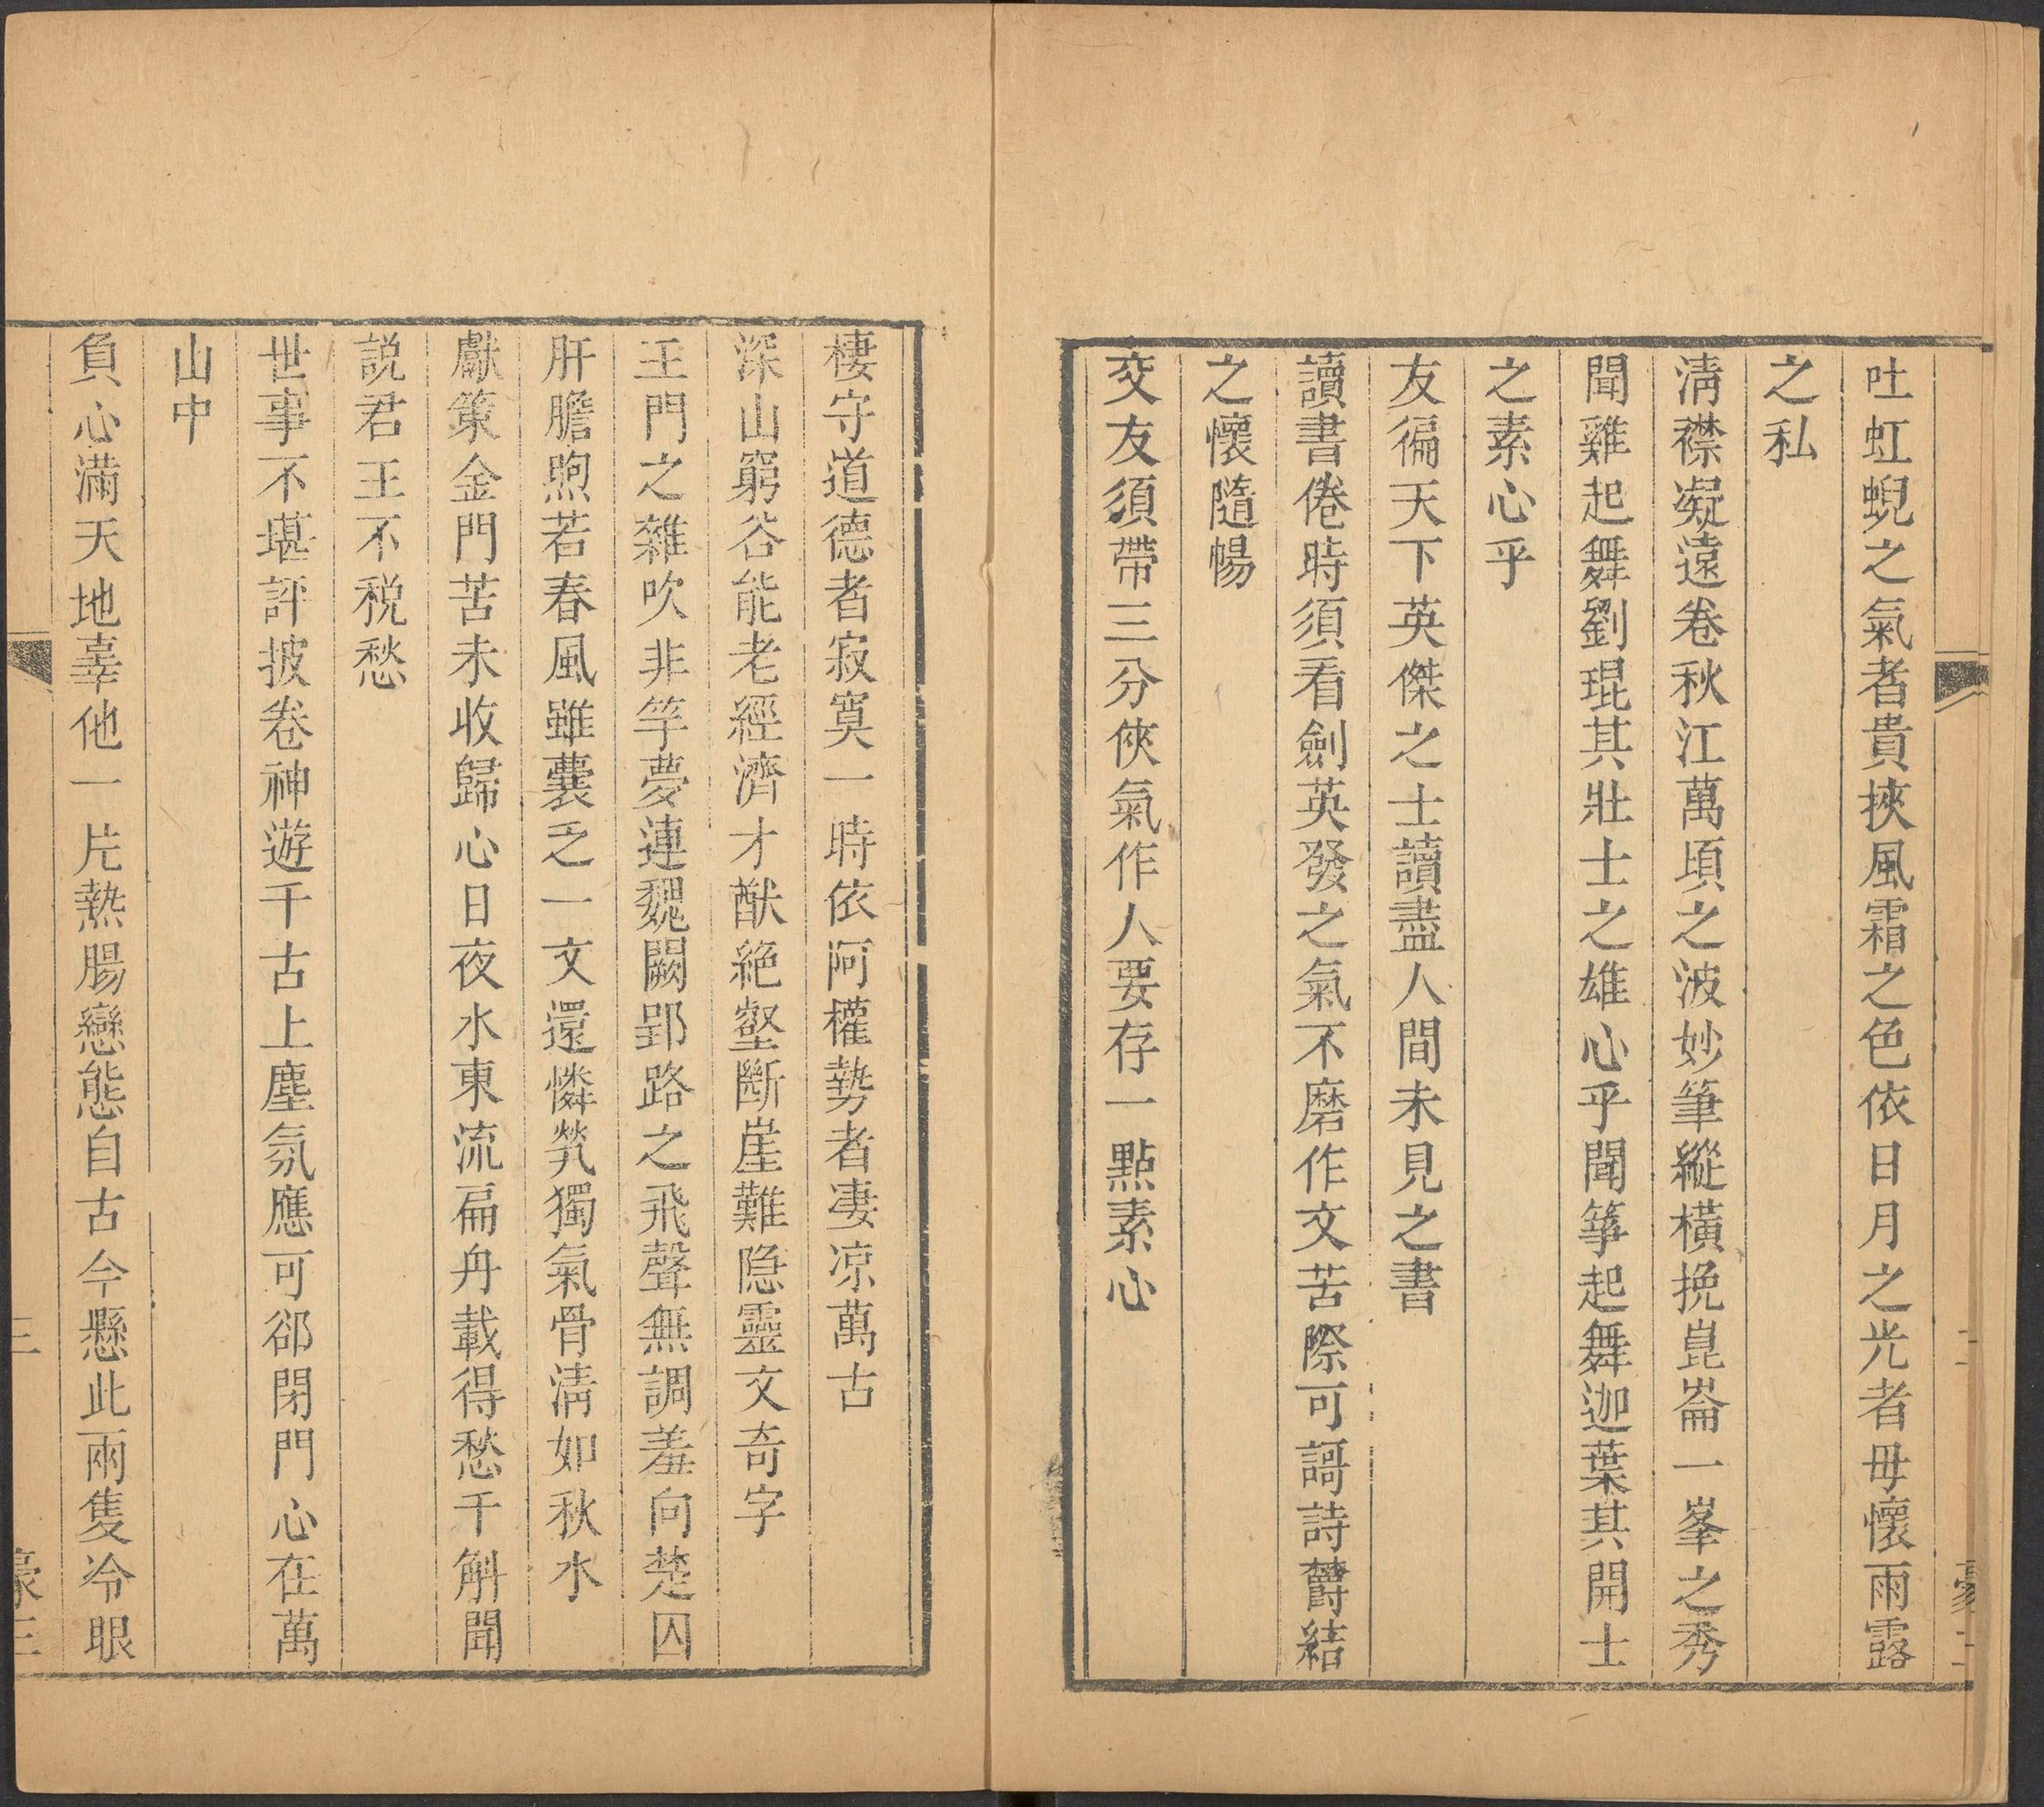 吐虹蜺之氣者貴挾風霜之色依日月之光者毋懷雨露
之私
淸襟凝遠卷秋江萬頃之波妙筆縱橫挽崑崙一峯之秀
聞雞起舞劉琨其壯士之雄心乎聞箏起舞迦葉其開士
之素心乎
友徧天下英傑之士讀盡人間未見之書
讀書倦時須看劍英發之氣不磨作文苦際可謌詩欝結
之懷隨暢
交友須帶三分俠氣作人要存一點素心
棲守道德者寂寞一時依阿權勢者凄凉萬古
深山窮谷能老經濟才猷絶壑斷崖難隐靈文奇字
王門之雜吹非竽夢連魏闕郢路之飛聲無調羞向楚囚
肝膽煦若春風雖囊乏一文還憐焭獨氣骨淸如秋水
獻策金門苦未收歸心日夜水東流扁舟載得愁千斛聞
説君王不税愁
世事不堪評披卷神遊千古上塵氛應可郤閉門心在萬
山中
負心滿天地辜他一片熱腸戀態自古今懸此兩隻冷眼
三
豪三